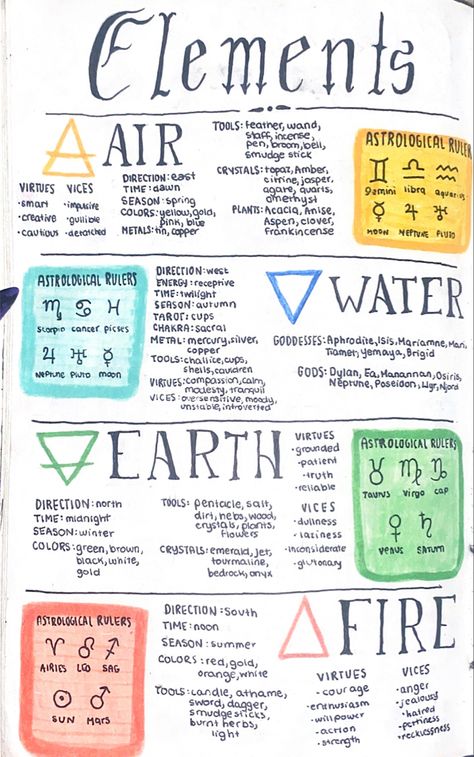 Elements
AIR
VIRTUES
• smart
• creative
• cautious
VICES
• impulsive
• gullible
• detatched
DIRECTION: east
TIME: dawn
SEASON: spring
COLORS: yellow, gold,
pink, blue
METALS: tin, copper
TOOLS: feather, wand,
staff, incense,
pen, broom, bell,
smudge stick
CRYSTALS: topaz, Amber,
citrine, jasper,
agate, quartis,
amethyst
PLANTS: Acacia, Anise,
Aspen, clover,
frankincense
ASTROLOGICAL RULERS
♊ ♎ ♒
Gemini libra aquarius
☿ ♃ ♅
MOON NEPTUNE PLUTO
ASTROLOGICAL RULERS
♏ ♋ ♓
Scorpio cancer picses
♃ ♅ ☿
Neptune Pluto moon
DIRECTION: west
ENERGY: receptive
TIME: twilight
SEASON: autumn
TAROT: cups
CHAKRA: sacral
METAL: mercury, silver,
copper
TOOLS: challice, cups,
shells, cauldren
VIRTUES: compassion, calm,
modesty, tranquil
VICES: oversensitive, moody,
unstable, introverted
WATER
GODDESSES: Aphrodite, Isis, Mariamne, Mari,
Tiamet, Yemaya, Brigid
GODS: Dylan, Ea, Manannan, Osiris,
Neptune, Poseidon, Njord
EARTH
DIRECTION: north
TIME: midnight
SEASON: winter
COLORS: green, brown,
black, white,
gold
TOOLS: pentacle, salt,
dirt, herbs, wood,
crystals, plants,
flowers
CRYSTALS: emerald, jet,
tourmaline,
bedrock, onyx
VIRTUES
• grounded
• patient
• truth
• reliable
VICES
• dullness
• laziness
• inconsiderate
• glutonary
ASTROLOGICAL RULERS
♉ ♍ ♑
Taurus Virgo cap
♀ ♄
Venus Saturn
ASTROLOGICAL RULERS
♈ ♌ ♐
AIRIES LEO SAG
☉ ♂
SUN Mars
DIRECTION: South
TIME: noon
SEASON: summer
COLORS: red, gold,
orange, white
TOOLS: candle, athame,
sword, dagger,
smudge sticks,
burnt herbs,
light
FIRE
VIRTUES
• courage
• enthusiasm
• willpower
• action
• strength
VICES
• anger
• jealousy
• hatred
• pettiness
• recklessness